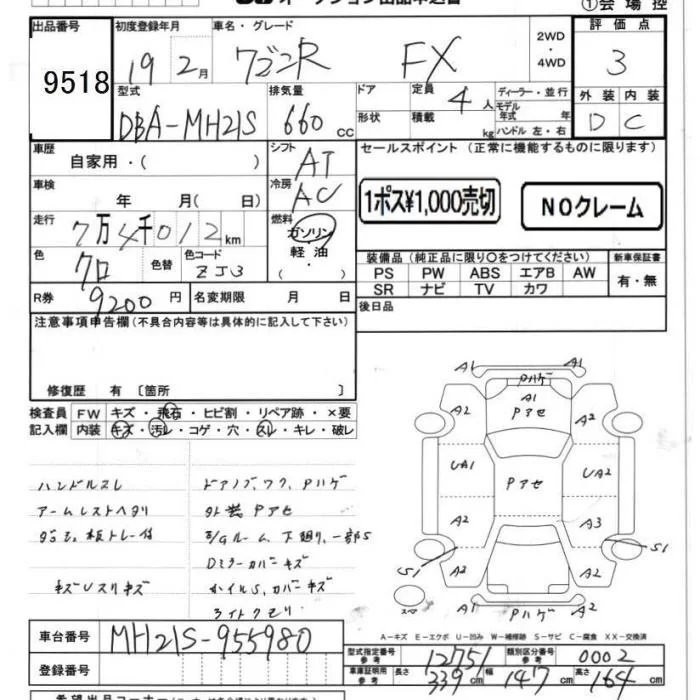 オークション出品申込書
①会場控
出品番号 初度登録年月 車名・グレード 2WD ・ 4WD 評価点
9518 19 2月 ワゴンR FX 3
型式 排気量 ドア 定員 4人 ディーラー・並行 外装 内装
DBA-MH21S 660 cc 形状 積載 kg モデル年式 年 ハンドル 左・右 D C
車歴 自家用・( ) シフト AT セールスポイント (正常に機能するものに限ります)
車検 年 月( 日) 冷房 AC 1ポス¥1,000売切 NOクレーム
走行 7万4千012km 燃料 ガソリン・軽油・( )
色 クロ 色替 色コード ZJ3 装備品(純正品に限り○をつけてください) 新車保証書
PS PW ABS エアB AW 有・無
SR ナビ TV カワ
R券 9200円 名変期限 月 日 後日品
注意事項申告欄(不具合内容等は具体的に記入して下さい)
修復歴 有〔箇所 〕
検査員 FW キズ・飛石・ヒビ割・リペア跡・×要
記入欄 内装 キズ・汚レ・コゲ・穴・スレ・キレ・破レ
ハンドルスレ ドアノブ、ワク、Pハゲ
アームレストヘタリ 外装Pアセ
下廻リ、一部S
Dミラーカバーキズ
キズUスリキズ ホイルS、カバーキズ
ライトクモリ
A1 A1
Pハゲ
A1
Pアセ
A2 A2
UA1 Pアセ UA2
A2 A3
S1 S1
A2 A2
A1 Pハゲ A2
A-キズ E-エクボ U-凹み W-補修跡 S-サビ C-腐食 XX-交換済
車台番号 MH21S-955980
型式指定番号 参考 12751 類別区分番号 参考 0002
登録番号 車庫証明用 参考 長さ 339cm 幅 147cm 高さ 164cm
希望出品コーナー